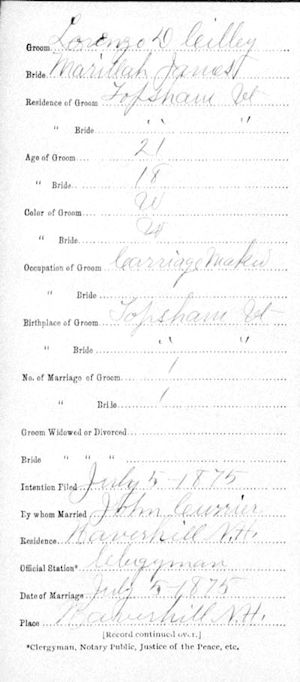 Groom Lorenzo D Cilley
Bride Marillah James
Residence of Groom Topsham Vt
" Bride " "
Age of Groom 21
" Bride 18
Color of Groom W
" Bride W
Occupation of Groom Carriage Maker
" Bride
Birthplace of Groom Topsham Vt
" Bride " "
No. of Marriage of Groom 1
" Bride 1
Groom Widowed or Divorced
Bride " " "
Intention Filed July 5 - 1875
By whom Married John Currier
Residence Haverhill N.H.
Official Station* Clergyman
Date of Marriage July 5 - 1875
Place Haverhill N.H.
[Record continued over.]
*Clergyman, Notary Public, Justice of the Peace, etc.